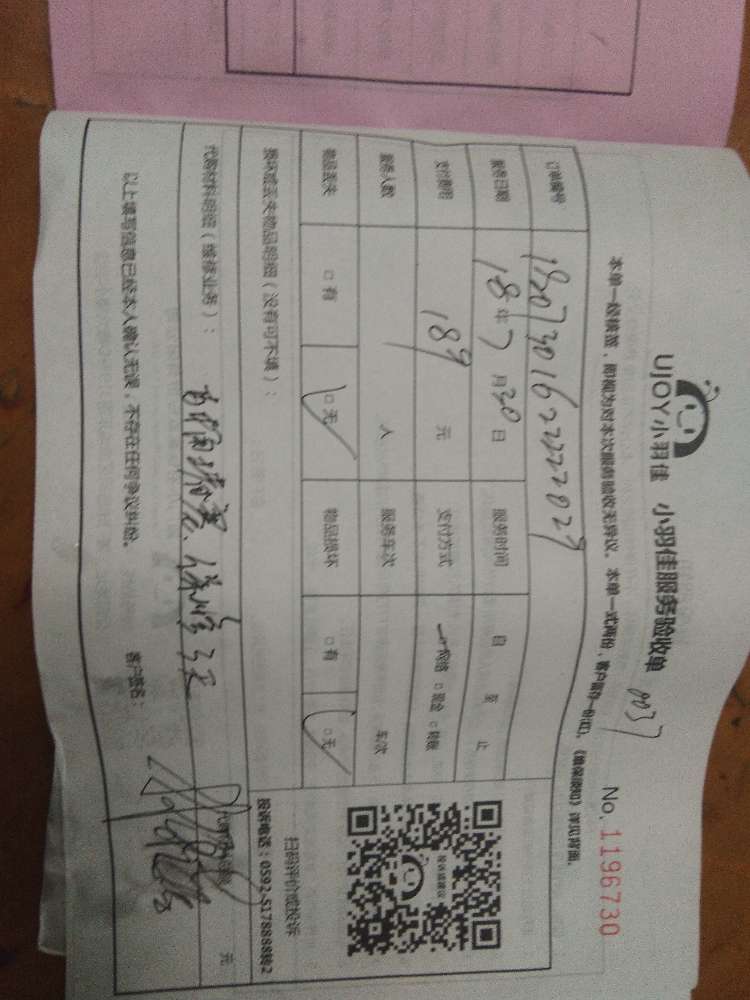 UJOY小羽佳 小羽佳服务验收单 0037
No. 1196730
本单一经核签，即视为对本次服务验收无异议。本单一式两份，客户留存一份(红)。《维保须知》详见背面。
订单编号 180730162222029
服务日期 18年7月30日 服务时间 自 至 止
支付费用 189 元 支付方式 网络 □现金 □转账
服务人数 人 服务车次 车次
物品丢失 □有 □无 物品损坏 □有 □无
损坏或丢失物品明细（没有可不填）：
扫码评价或投诉
投诉电话：0592-5178888转2
代购材料明细（维修业务）：
元
以上填写信息已经本人确认无误，不存在任何争议纠纷。 客户签名：